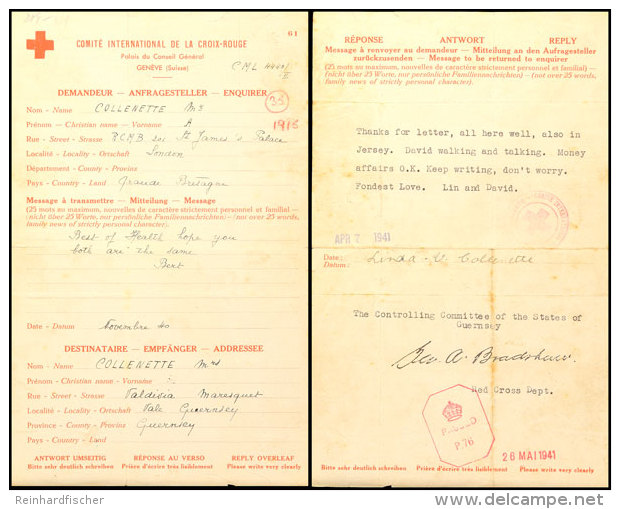 61
COMITÉ INTERNATIONAL DE LA CROIX-ROUGE
Palais du Conseil Général
GENÈVE (Suisse)
CML
DEMANDEUR — ANFRAGESTELLER — ENQUIRER
23
Nom - Name COLLENETTE Mr
1916
Prénom - Christian name - Vorname A
Rue - Street - Strasse P.C.M.B. 201 St James's Palace
Localité - Locality - Ortschaft London
Département - County - Provinz
Pays - Country - Land Grande Bretagne
Message à transmettre — Mitteilung — Message
(25 mots au maximum, nouvelles de caractère strictement personnel et familial) —
(nicht über 25 Worte, nur persönliche Familiennachrichten) — (not over 25 words,
family news of strictly personal character).
Best of Health hope you
both are the same
Bert
Date - Datum Novembre 40
DESTINATAIRE — EMPFÄNGER — ADDRESSEE
Nom - Name COLLENETTE Mrs
Prénom - Christian name - Vorname
Rue - Street - Strasse Valdisia Maresquet
Localité - Locality - Ortschaft Vale Guernsey
Province - County - Provinz Guernsey
Pays - Country - Land
ANTWORT UMSEITIG RÉPONSE AU VERSO REPLY OVERLEAF
Bitte sehr deutlich schreiben Prière d'écrire très lisiblement Please write very clearly
RÉPONSE ANTWORT REPLY
Message à renvoyer au demandeur — Mitteilung an den Anfragesteller
zurückzusenden — Message to be returned to enquirer
(25 mots au maximum, nouvelles de caractère strictement personnel et familial) —
(nicht über 25 Worte, nur persönliche Familiennachrichten) — (not over 25 words,
family news of strictly personal character).
Thanks for letter, all here well, also in
Jersey. David walking and talking. Money
affairs O.K. Keep writing, don't worry.
Fondest Love. Lin and David.
APR 7 1941
Date:
Datum: Linda Collenette
The Controlling Committee of the States of
Guernsey
Geo. A. Bradshaw.
Red Cross Dept.
PASSED
P.76
26 MAI 1941
Bitte sehr deutlich schreiben Prière d'écrire très lisiblement Please write very clearly
Reinhardfischer
delcampe.net